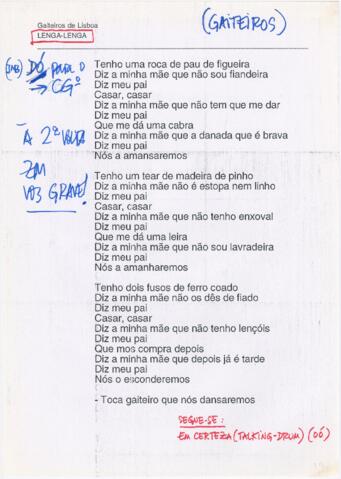 Gaiteiros de Lisboa
LENGA-LENGA
(GAITEIROS)
DÓ PARA O
→ CGº
À 2ª VOLTA
EM
VOZ GRAVE!
Tenho uma roca de pau de figueira
Diz a minha mãe que não sou fiandeira
Diz meu pai
Casar, casar
Diz a minha mãe que não tem que me dar
Diz meu pai
Que me dá uma cabra
Diz a minha mãe que a danada que é brava
Diz meu pai
Nós a amansaremos
Tenho um tear de madeira de pinho
Diz a minha mãe não é estopa nem linho
Diz meu pai
Casar, casar
Diz a minha mãe que não tenho enxoval
Diz meu pai
Que me dá uma leira
Diz a minha mãe que não sou lavradeira
Diz meu pai
Nós a amanharemos
Tenho dois fusos de ferro coado
Diz a minha mãe não os dês de fiado
Diz meu pai
Casar, casar
Diz a minha mãe que não tenho lençóis
Diz meu pai
Que mos compra depois
Diz a minha mãe que depois já é tarde
Diz meu pai
Nós o esconderemos
- Toca gaiteiro que nós dansaremos
SEGUE-SE:
EM CERTEZA (TALKING-DRUM) (OÓ)